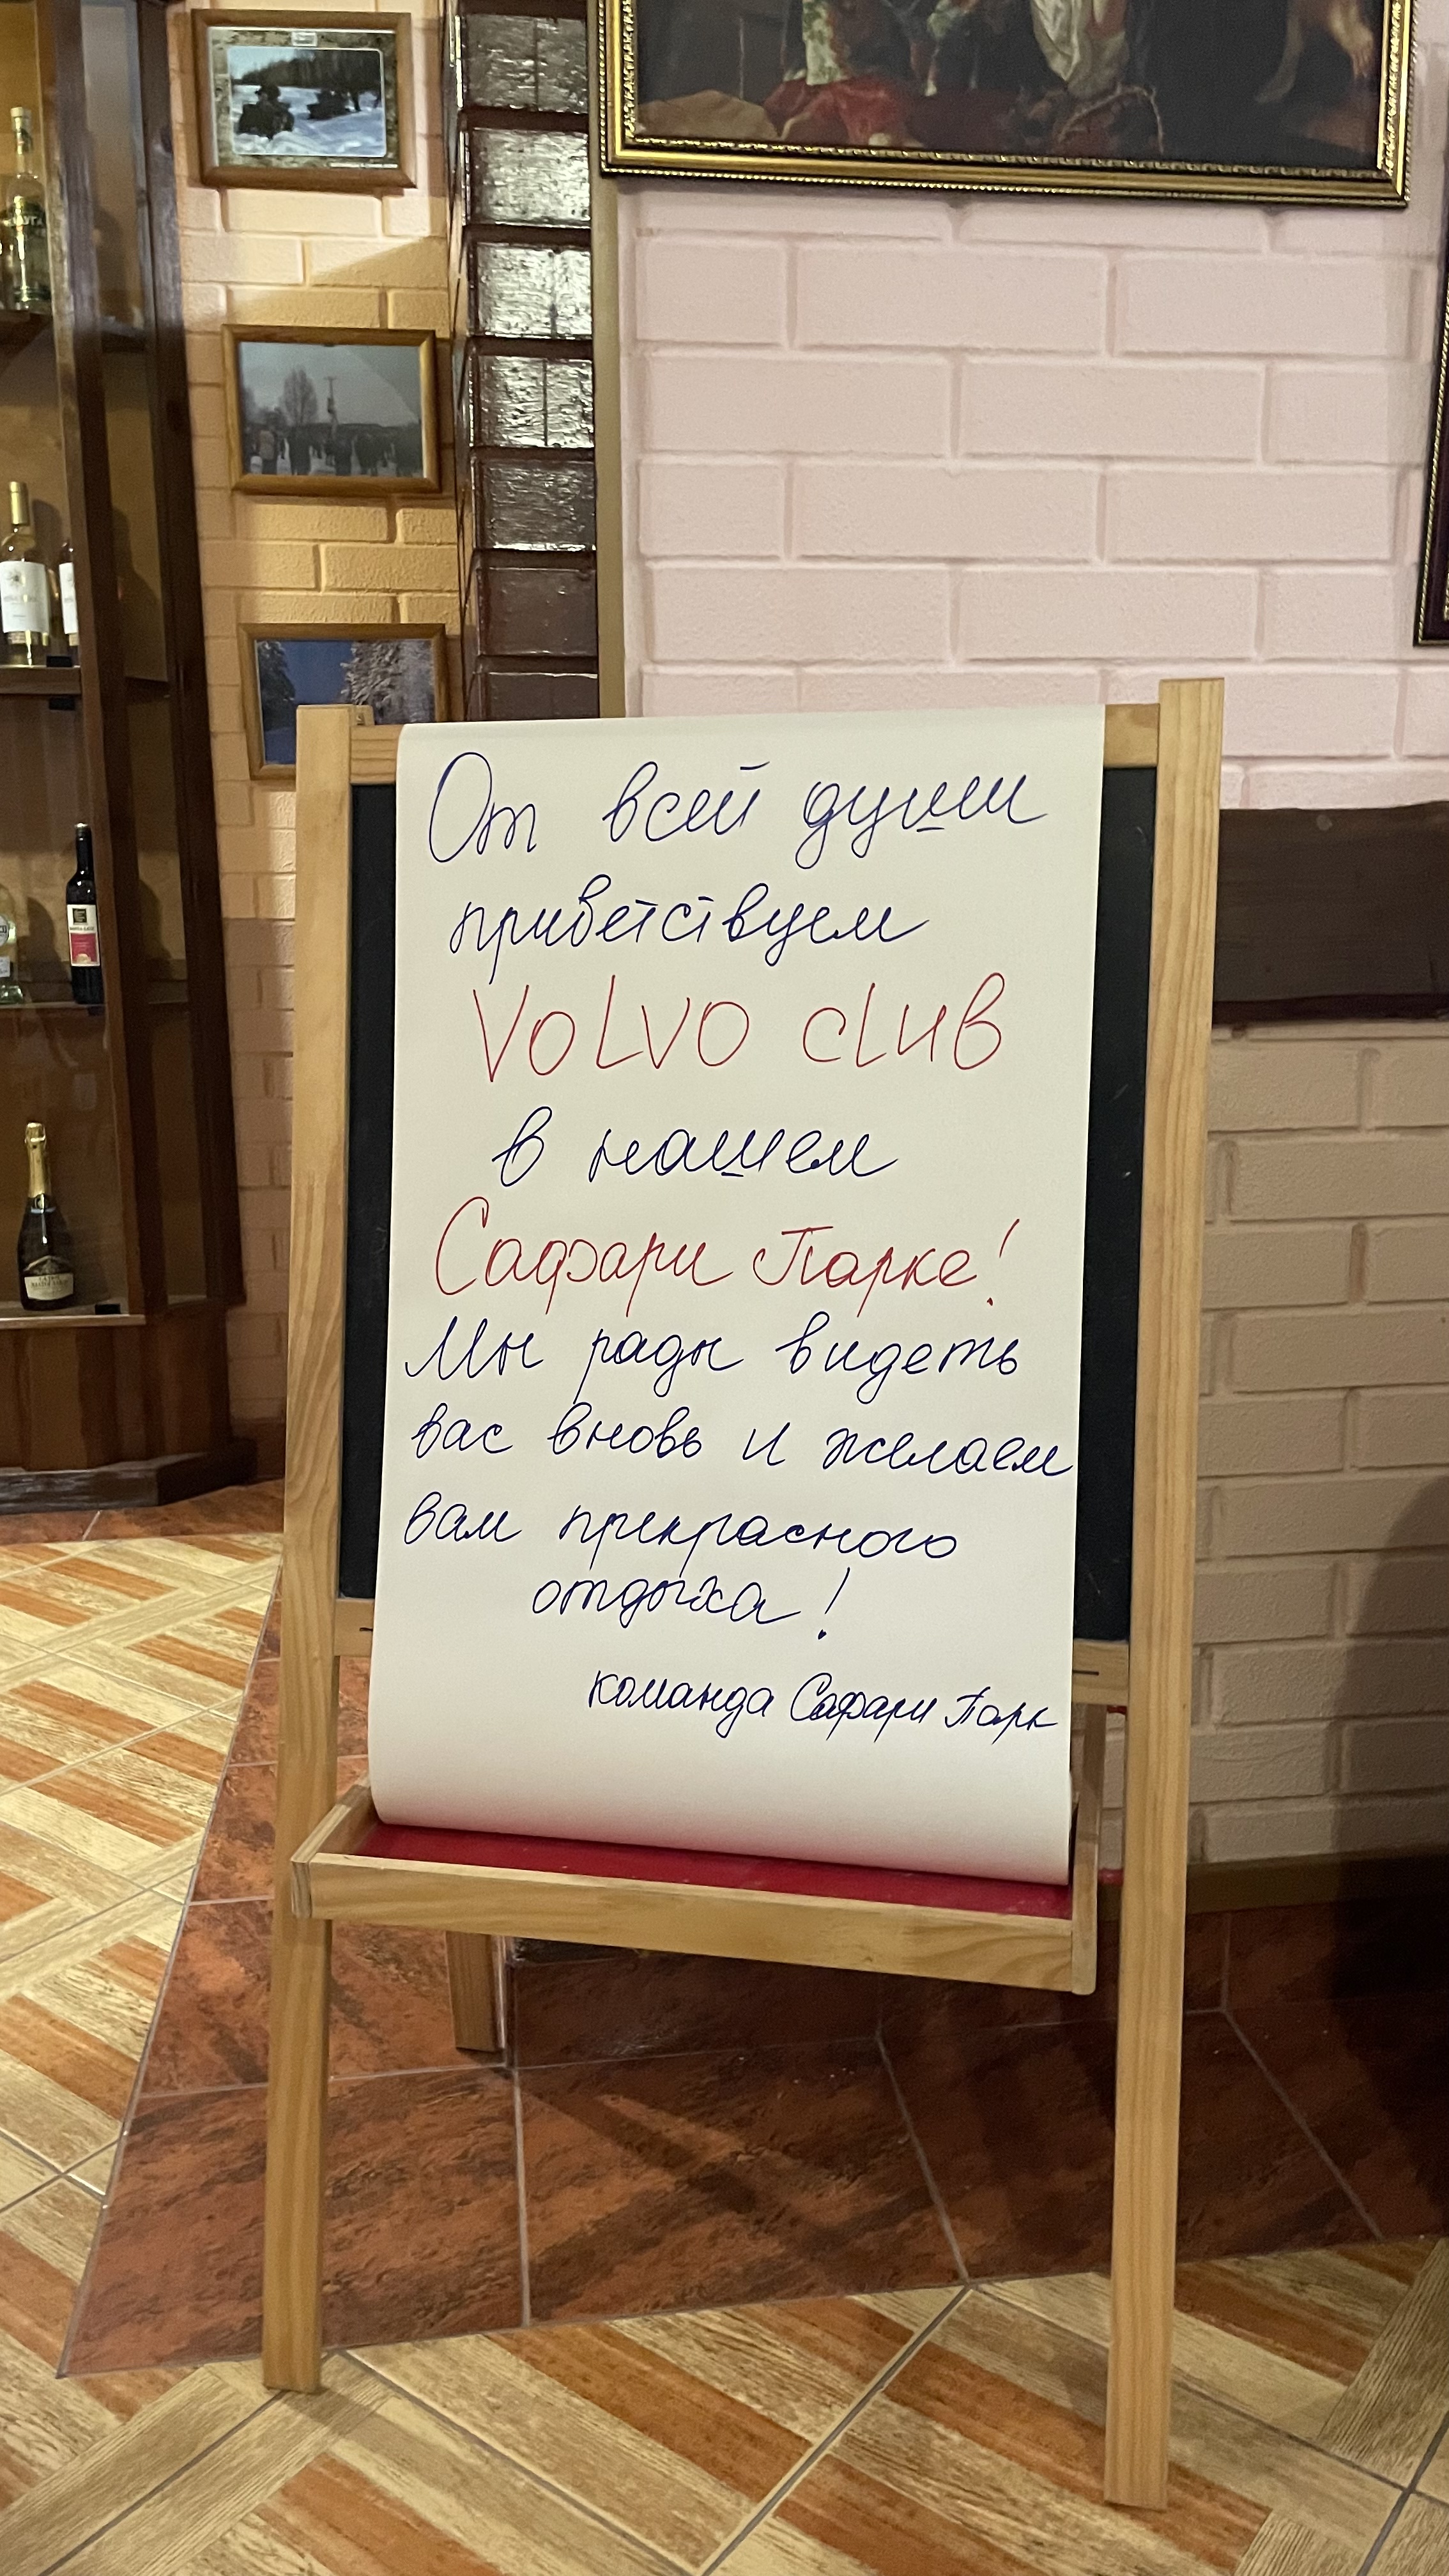 От всей души
приветствуем
VOLVO CLUB
в нашем
Сафари Парке!
Мы рады видеть
вас вновь и желаем
вам прекрасного
отдыха!
команда Сафари Парк